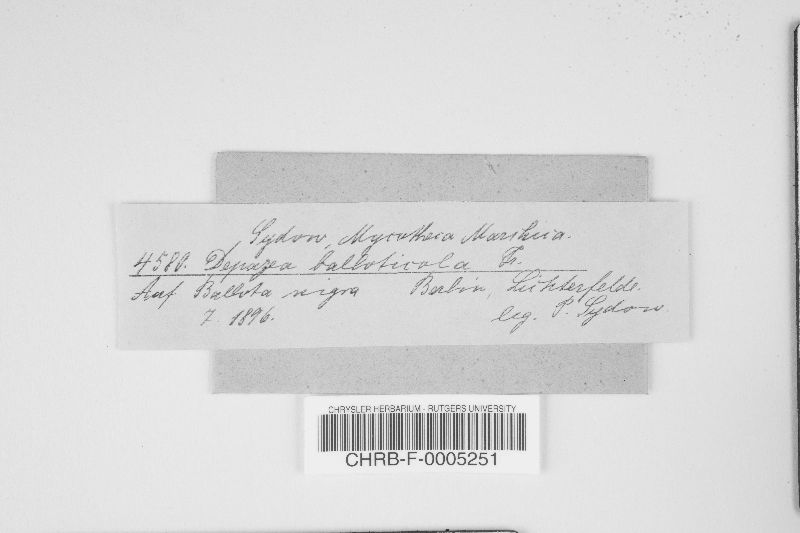 Sydow, Mycotheca Marchica.
4580. Depazea balloticola Fr.
Auf Ballota nigra Berlin, Lichterfelde.
7. 1896. leg. P. Sydow.
CHRYSLER HERBARIUM - RUTGERS UNIVERSITY
CHRB-F-0005251